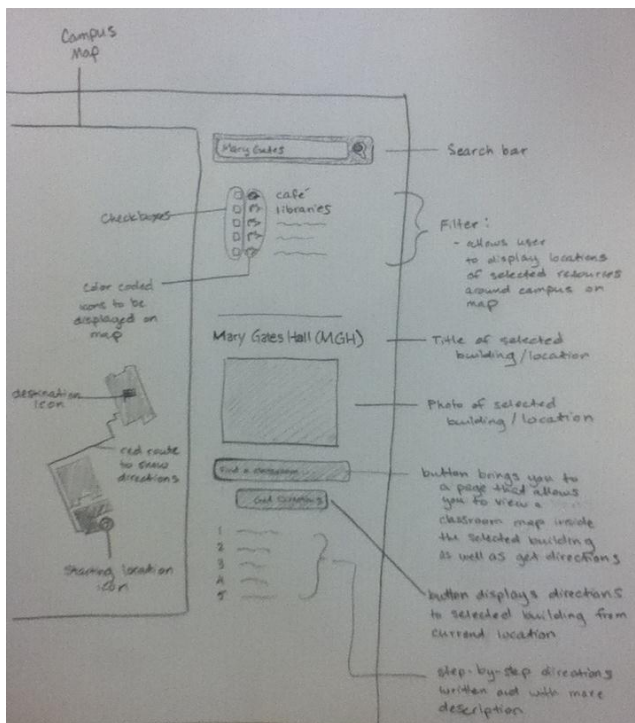 Campus
Map
Mary Gates
Search bar
café
libraries
Checkboxes
Filter:
- allows user
to display locations
of selected resources
around campus on
map
Color coded
icons to be
displayed on
map
Mary Gates Hall (MGH)
Title of selected
building/location
destination
icon
Photo of selected
building/location
red route
to show
directions
Find a classroom
button brings you to
a page that allows
you to view a
classroom map inside
the selected building
as well as get directions
Get Directions
Starting location
icon
1
2
3
4
5
button displays directions
to selected building from
current location
step-by-step directions
written out with more
description